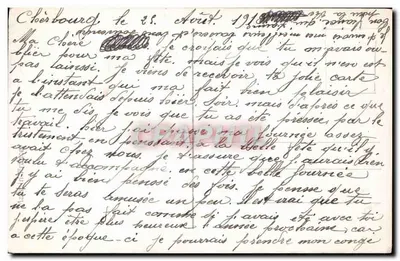 Cherbourg le 25 Août 19
Ma Chère je croyais que tu m'avais ou-
blier pour ma fête mais je vois qu'il n'en est
pas ainssi. Je viens de recevoir ta jolie carte
a l'instant qui ma fait bien plaisir
je l'attendais depuis hier soir mais d'après ce que
tu me dis je vois que tu as été pressée par le
travail. hier j'ai passé ma journée assez
tristement en pensant a la belle fête qu'il y
avait chez nous je t'assure que j'aurais bien
voulu t'accompagner en cette belle journée
j'y ai bien pensé des fois. Je pense que
tu te seras amusée un peu. Il est vrai que tu
ne l'a pas fait comme si j'avais été avec toi
j'espère être plus heureux l'année prochaine, car
a cette époque-ci je pourrais prendre mon congé